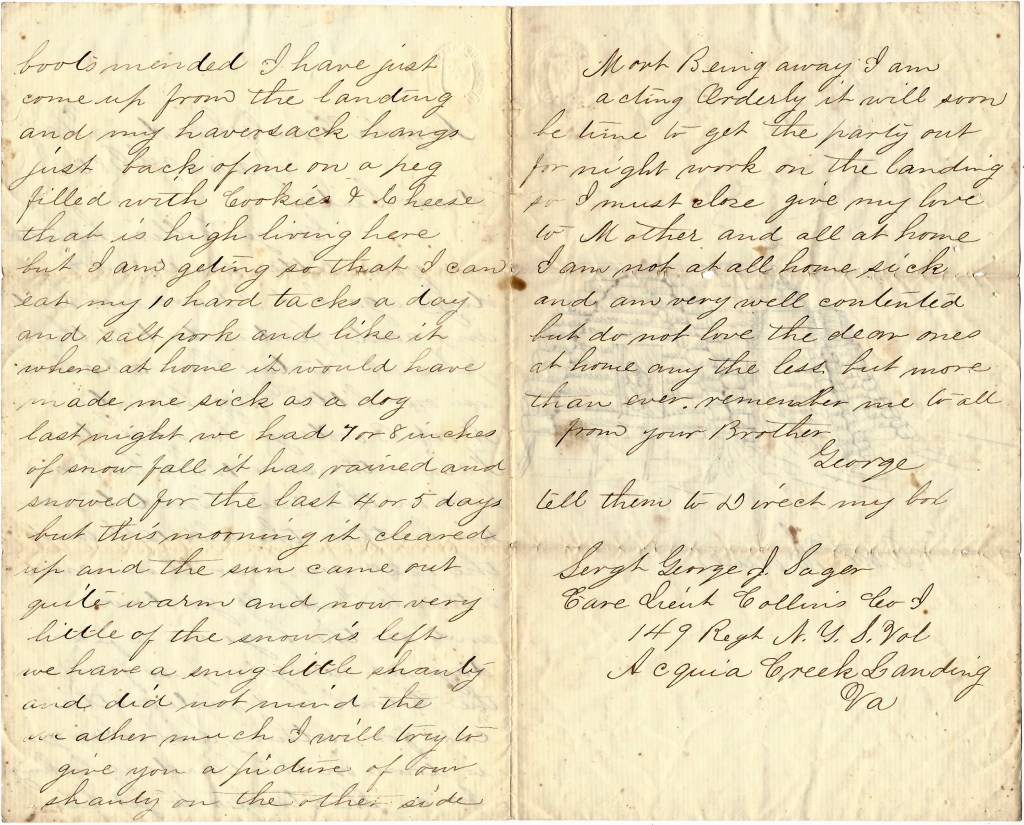 boots mended I have just
come up from the landing
and my haversack hangs
just back of me on a peg
filled with Cookies & Cheese
that is high living here
but I am geting so that I can
eat my 10 hard tacks a day
and salt pork and like it
where at home it would have
made me sick as a dog
last night we had 7 or 8 inches
of snow fall it has rained and
snowed for the last 4 or 5 days
but this morning it cleared
up and the sun came out
quite warm and now very
little of the snow is left
we have a snug little shanty
and did not mind the
weather much I will try to
give you a picture of our
shanty on the other side
Mort Being away I am
acting Orderly it will soon
be time to get the party out
for night work on the landing
so I must close give my love
to Mother and all at home
I am not at all home sick
and am very well contented
but do not love the dear ones
at home any the less, but more
than ever. remember me to all
from your Brother
George
tell them to Direct my box
Sergt George J. Sager
Care Lieut Collins Co I
149 Regt N. Y. S. Vol
Acquia Creek Landing
Va